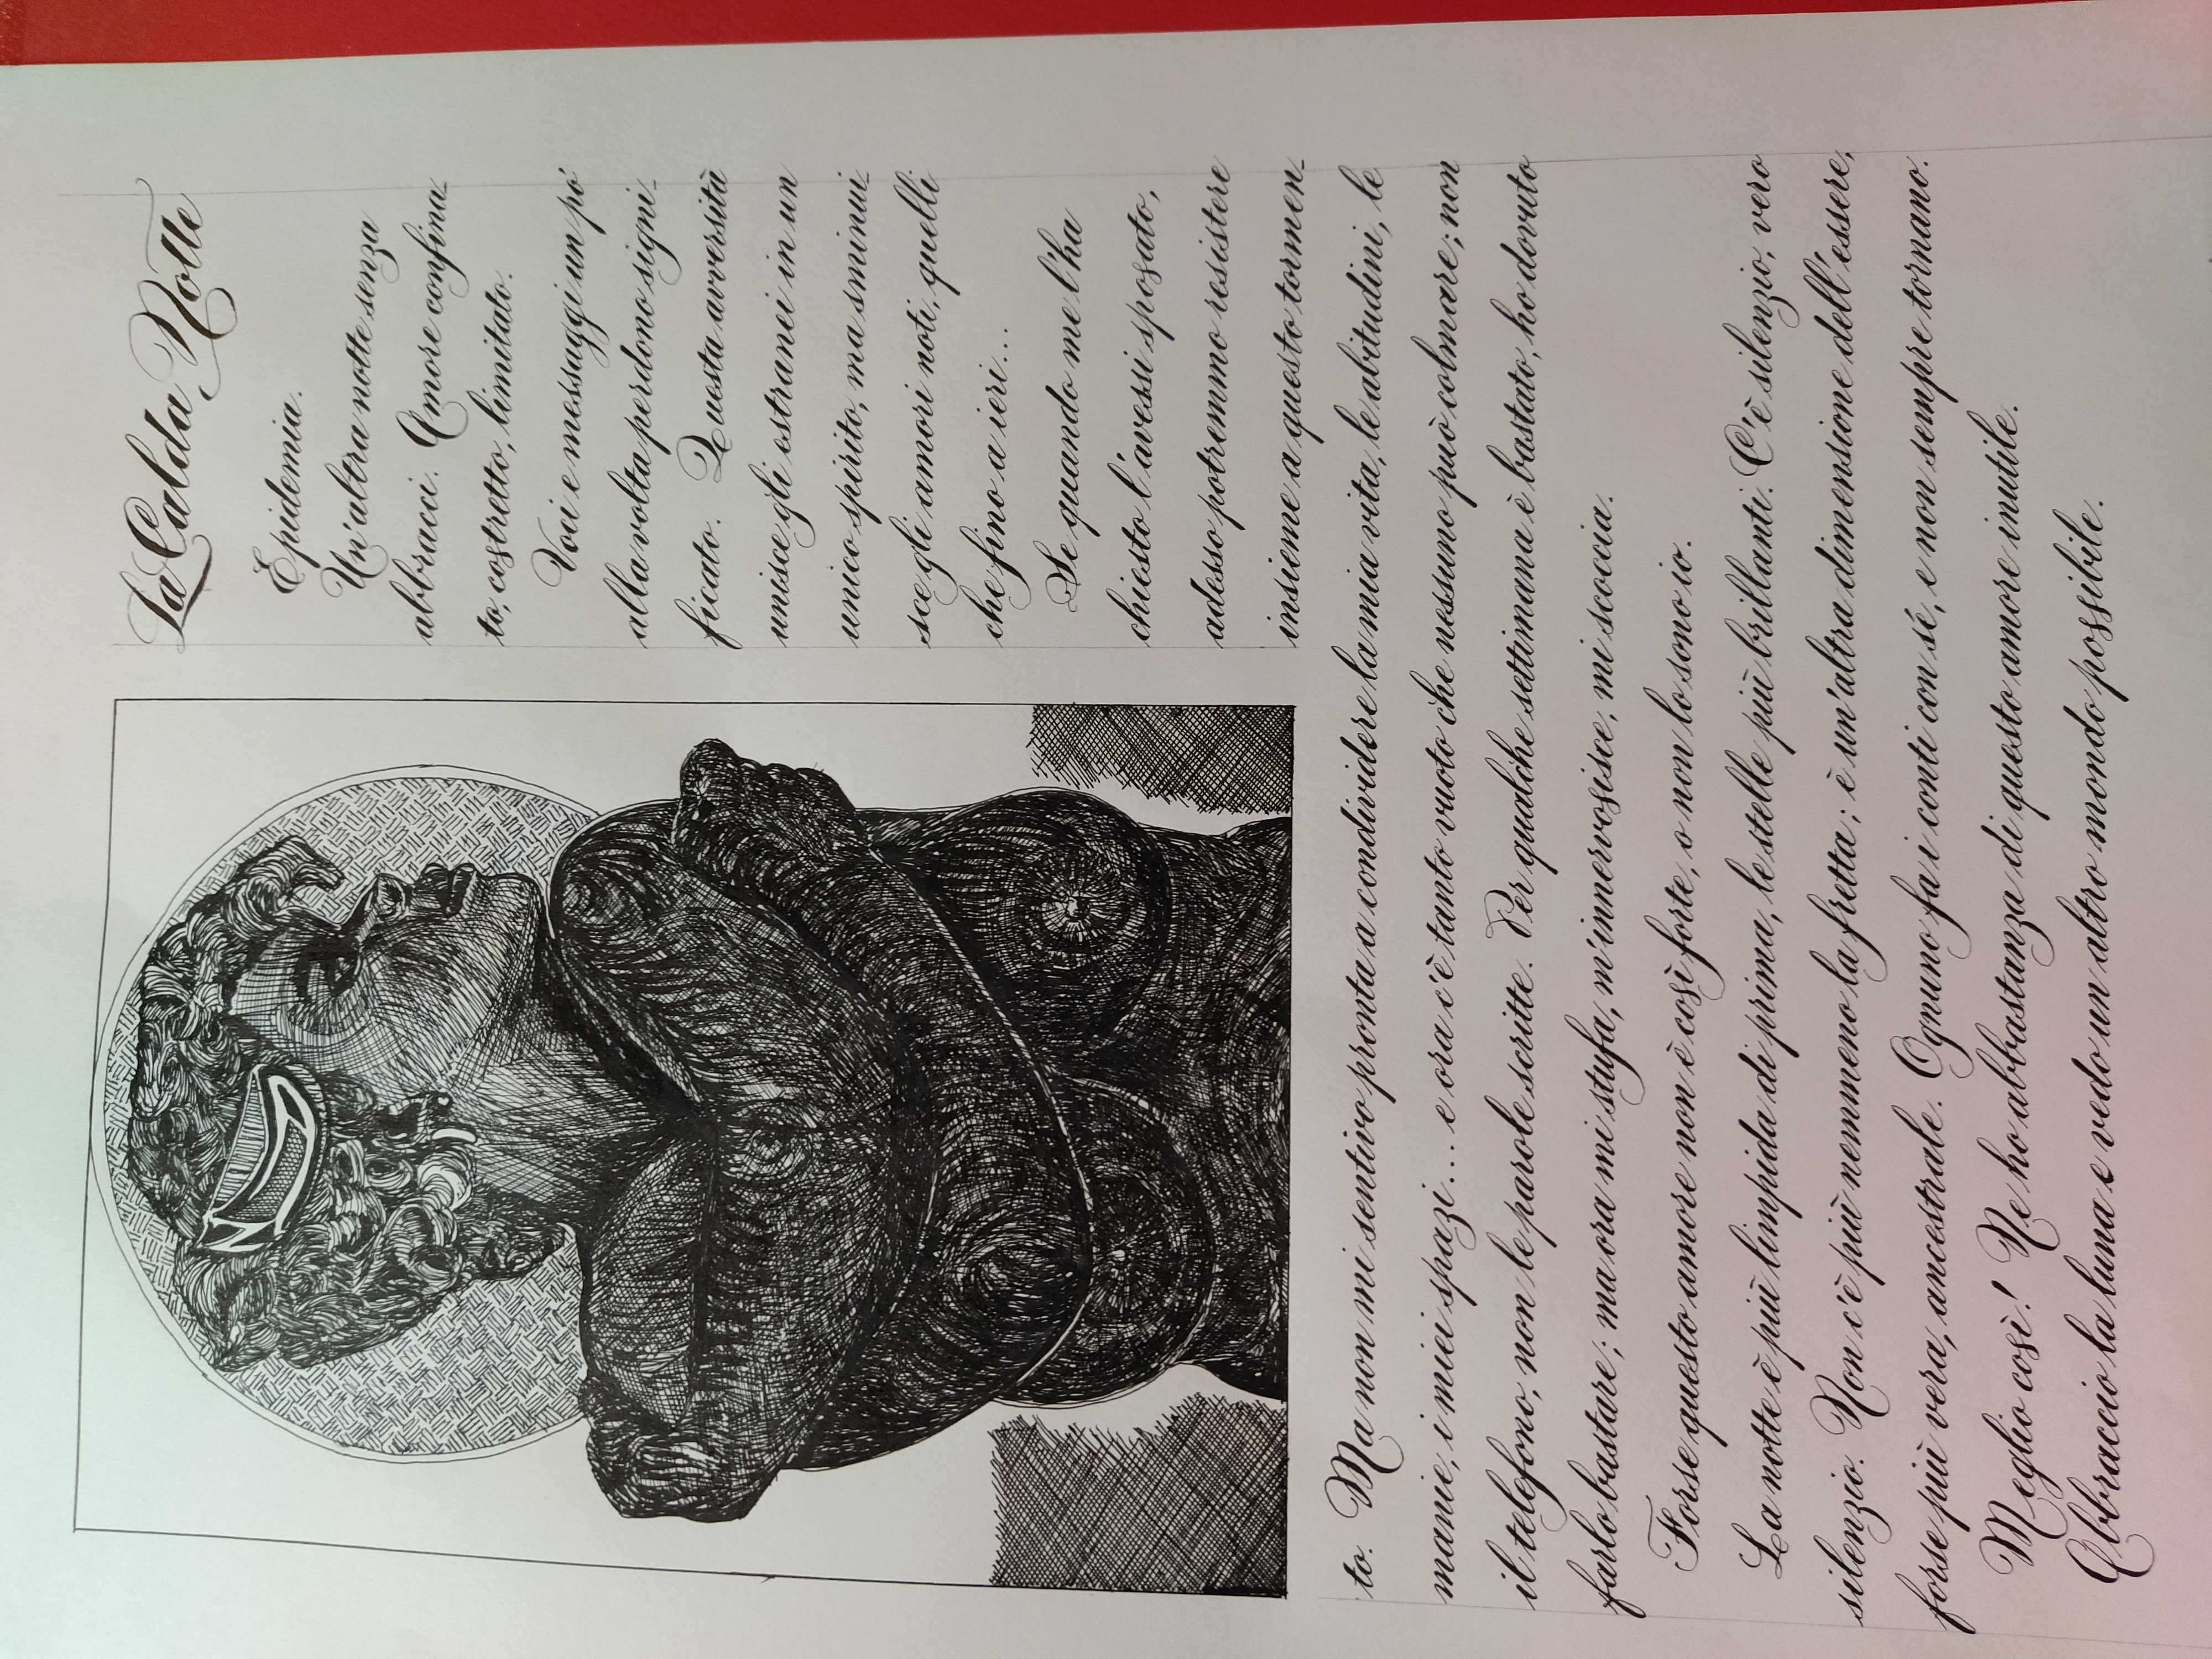 La Calda Notte
Epidemia.
Un'altra notte senza
abbracci. Amore confina_
to, costretto, limitato.
Voci e messaggi un pó
alla volta perdono signi_
ficato. Questa avversità
unisce gli estranei in un
unico spirito, ma sminui_
sce gli amori noti, quelli
che fino a ieri...
Se quando me l'ha
chiesto l'avessi sposato,
adesso potremmo resistere
insieme a questo tormen_
to. Ma non mi sentivo pronta a condividere la mia vita, le abitudini, le
manie, i miei spazi... e ora c'è tanto vuoto che nessuno può colmare; non
il telefono, non le parole scritte. Per qualche settimana è bastato, ho dovuto
farlo bastare; ma ora mi stufa, m'innervosisce, mi scoccia.
Forse questo amore non è così forte, o non lo sono io.
La notte è più limpida di prima, le stelle più brillanti. C'è silenzio, vero
silenzio. Non c'è più nemmeno la fretta; è un'altra dimensione dell'essere,
forse più vera, ancestrale. Ognuno fa i conti con sé, e non sempre tornano.
Meglio così! Ne ho abbastanza di questo amore inutile.
Abbraccio la luna e vedo un altro mondo possibile.